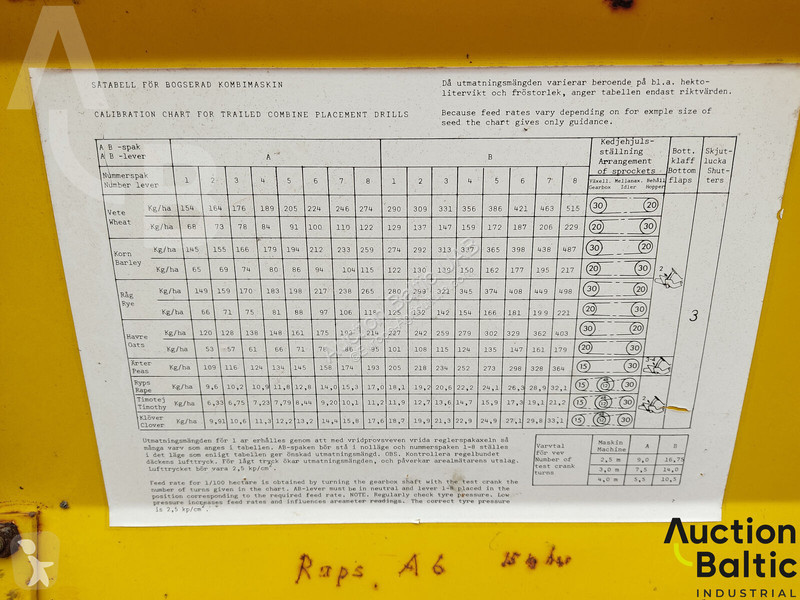 SÅTABELL FÖR BOGSERAD KOMBIMASKIN
CALIBRATION CHART FOR TRAILED COMBINE PLACEMENT DRILLS
Då utmatningsmängden varierar beroende på bl.a. hekto-
litervikt och fröstorlek, anger tabellen endast riktvärden.
Because feed rates vary depending on for exmple size of
seed the chart gives only guidance.
A B -spak
A B -lever
A
B
Kedjehjuls-
ställning
Arrangement
of sprockets
Bott.
klaff
Bottom
flaps
Skjut-
lucka
Shut-
ters
Nummerspak
Number lever
1 2 3 4 5 6 7 8 1 2 3 4 5 6 7 8
Växell. Mellanax. Behåll
Gearbox Idler Hopper
Vete
Wheat
Kg/ha 154 164 176 189 205 224 246 274 290 309 331 356 386 421 463 515 30 20
Kg/ha 68 73 78 84 91 100 110 122 129 137 147 159 172 187 206 229 20 30
Korn
Barley
Kg/ha 145 155 166 179 194 212 233 259 274 292 313 337 365 398 438 487 30 20
Kg/ha 65 69 74 80 86 94 104 115 122 130 139 150 162 177 195 217 20 30
2
Råg
Rye
Kg/ha 149 159 170 183 198 217 238 265 280 299 321 345 374 408 449 498 30 20
Kg/ha 66 71 75 81 88 97 106 118 125 132 142 154 166 181 199 221 20 30
3
Havre
Oats
Kg/ha 120 128 138 148 161 175 193 214 227 242 259 279 302 329 362 403 30 20
Kg/ha 53 57 61 66 71 86 95 101 108 115 124 135 147 161 179 20 30
Ärter
Peas
Kg/ha 109 116 124 134 145 158 174 193 205 218 234 252 273 298 328 364 15 30
Ryps
Rape
Kg/ha 9,6 10,2 10,9 11,8 12,8 14,0 15,3 17,0 18,1 19,2 20,6 22,2 24,1 26,3 28,9 32,1 15 30
Timotej
Timothy
Kg/ha 6,33 6,75 7,23 7,79 8,44 9,20 10,1 11,2 11,9 12,7 13,6 14,7 15,9 17,3 19,1 21,2 15 30
2
Klöver
Clover
Kg/ha 9,91 10,6 11,3 12,2 13,2 14,4 15,8 17,6 18,7 19,9 21,3 22,9 24,9 27,1 29,8 33,1 15 30
Utmatningsmängden för 1 ar erhålles genom att med vridprovsveven vrida reglerspakaxeln så
många varv som anges i tabellen. AB-spaken bör stå i nolläge och nummerspaken 1-8 ställes
i det läge som enligt tabellen ger önskad utmatningsmängd. OBS. Kontrollera regelbundet
däckens lufttryck. För lågt tryck ökar utmatningsmängd, och påverkar arealmätarens utslag.
Lufttrycket bör vara 2,5 kp/cm².
Feed rate for 1/100 hectare is obtained by turning the gearbox shaft with the test crank the
number of turns given in the chart. AB-lever must be in neutral and lever 1-8 placed in the
position corresponding to the required feed rate. NOTE. Regularly check tyre pressure. Low
pressure increases feed rates and influences areameter readings. The correct tyre pressure
is 2,5 kp/cm².
Varvtal
för vev
Number of
test crank
turns
Maskin
Machine A B
2,5 m 9,0 16,75
3,0 m 7,5 14,0
4,0 m 5,5 10,5
Raps A 6
Auction
Baltic
INDUSTRIAL